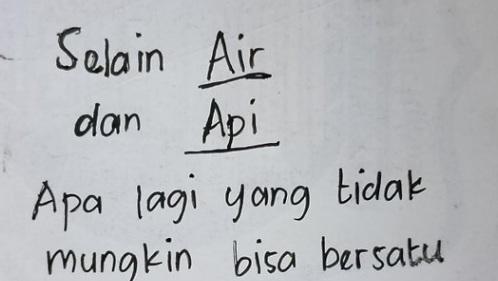 Selain Air
dan Api
Apa lagi yang tidak
mungkin bisa bersatu